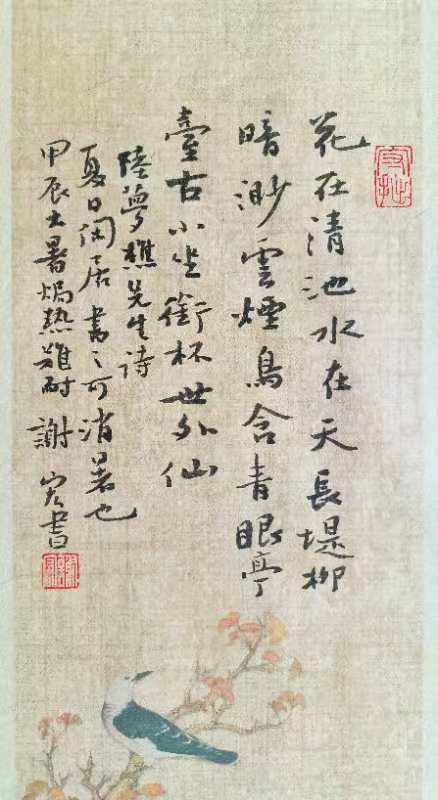 花在清池水在天長堤柳
暗渺雲煙鳥含青眼亭
臺古小坐銜杯世外仙
陸夢樵先生詩
夏日閑居書之可消暑也
甲辰大暑焗熱難耐謝宏書